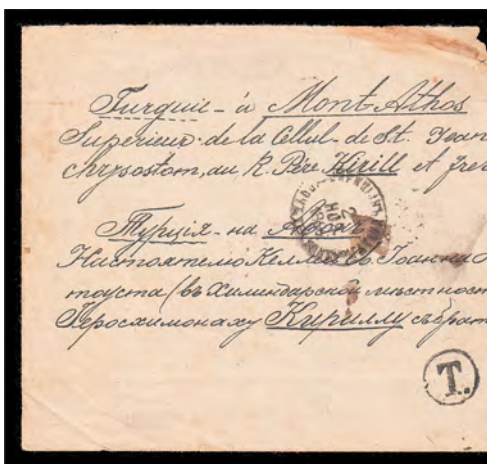 Turquie - à Mont Athos
Superieur de la Cellul - de St. Jean
Chrysostom, au R. Père Kirill et frer
Турція - на Афонъ
Настоятелю Келлей Св. Іоанна
тоуста (въ Хилендарской мѣстност
Іеросхимонаху Кириллу събрат
T.